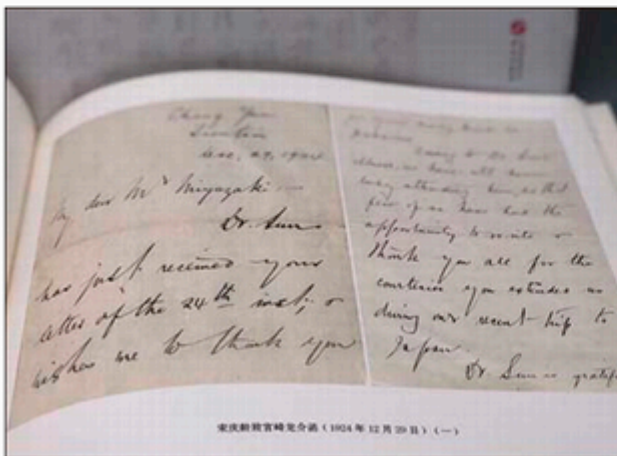 Chang Yuan
Tientsin
Dec. 29, 1924
My dear Mr Miyazaki
Dr. Sun
has just received your
letter of the 24th inst; &
wishes me to thank you
for your
Owing to Dr. Sun's
illness, we have all been
busy attending him, so that
few of us have had the
opportunity to write &
thank you all for the
courtesies you extended us
during our recent trip to
Japan.
Dr. Sun is
宋庆龄致宫崎龙介函(1924年12月29日)(一)